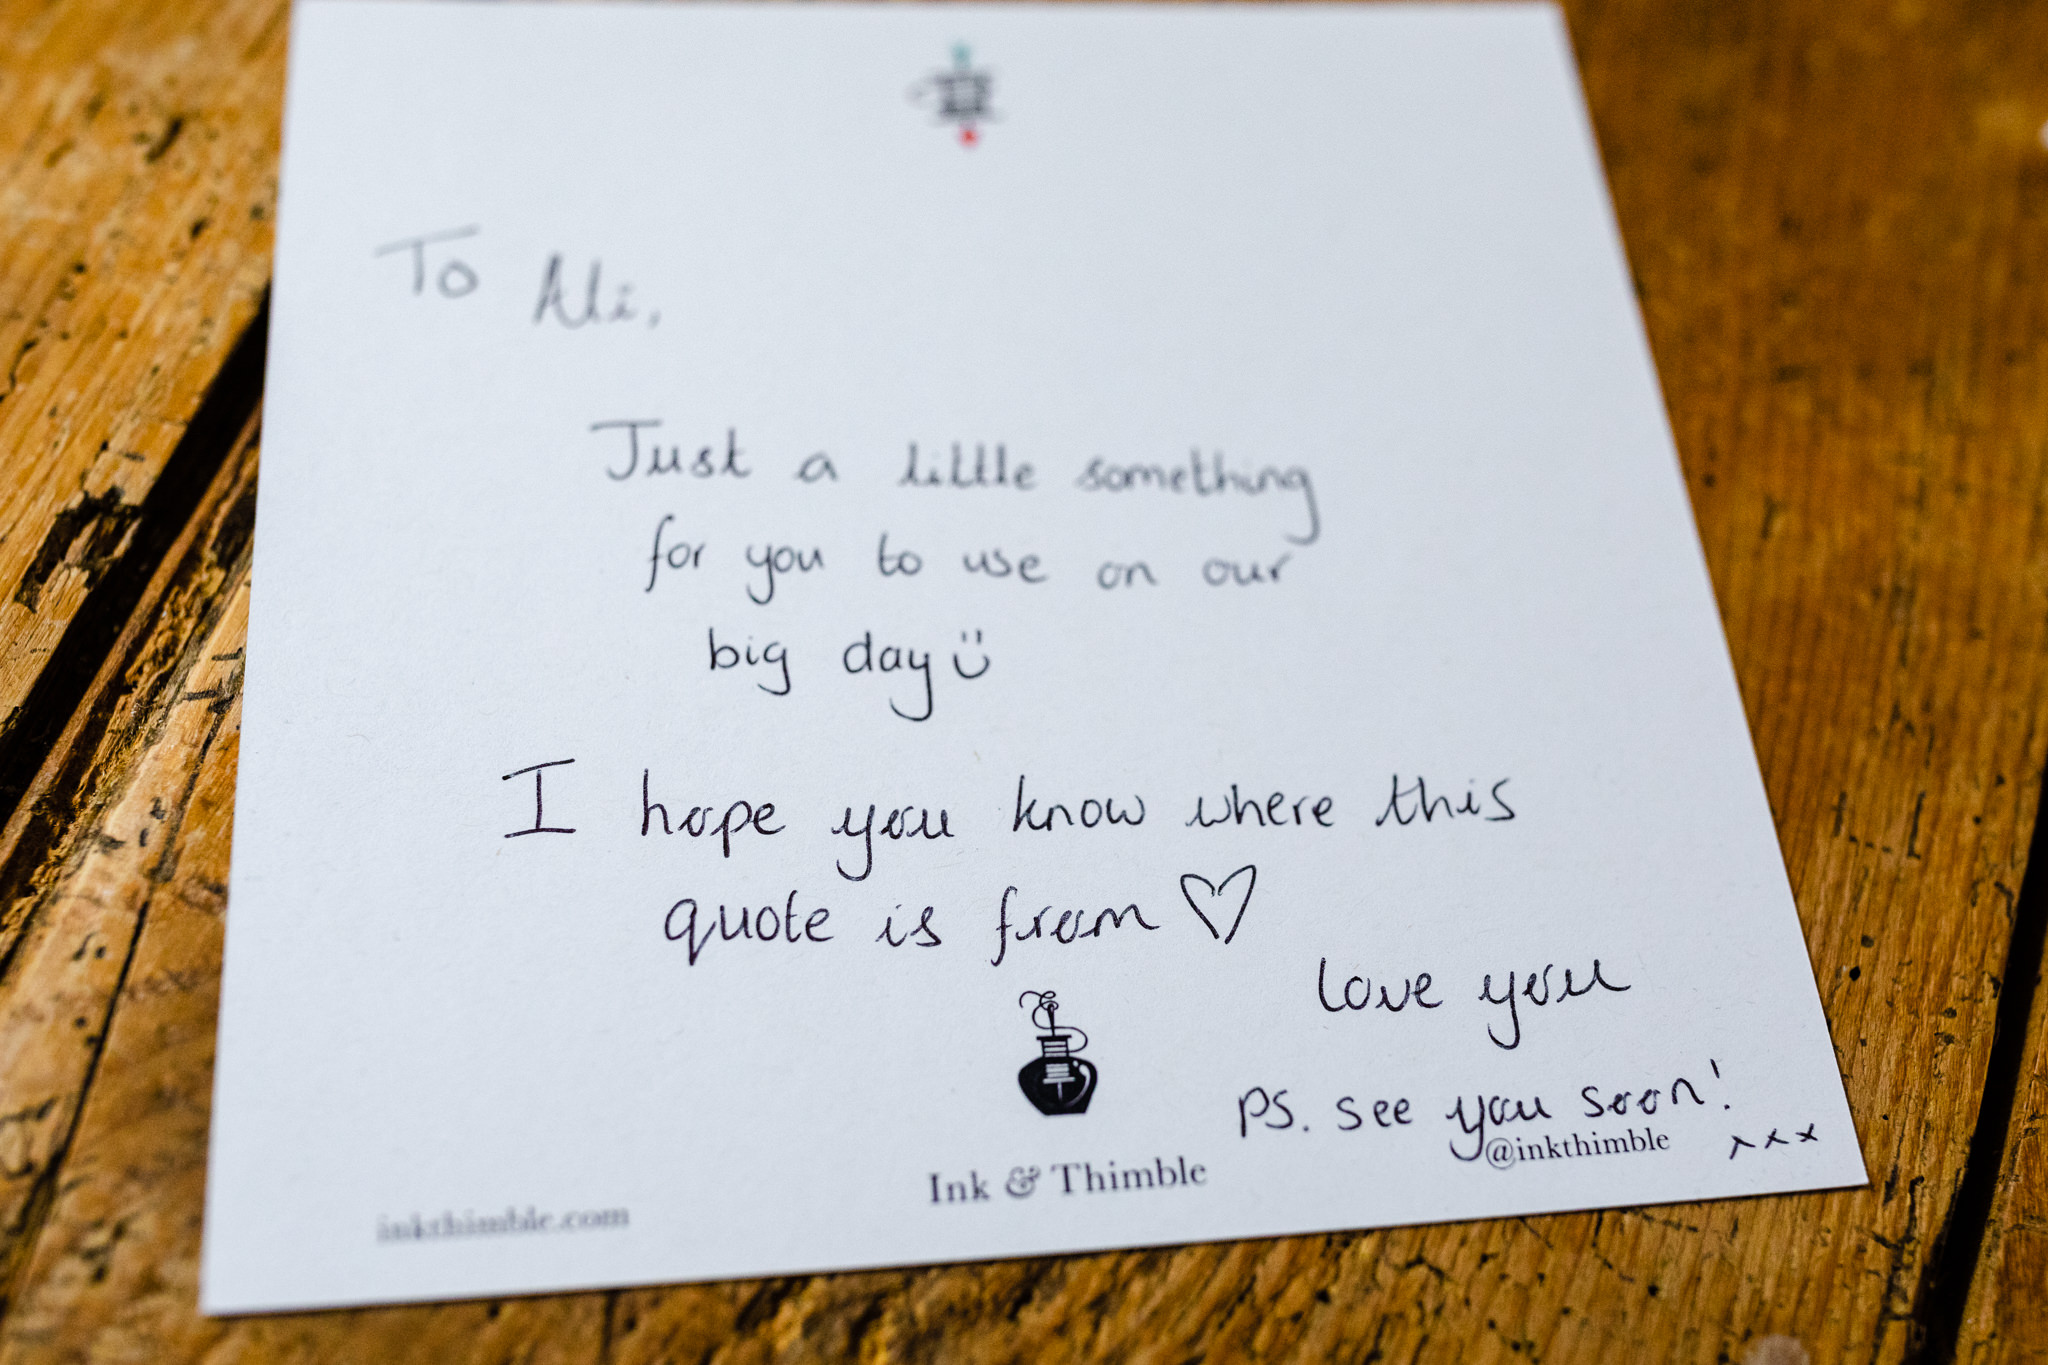 To Ali,
Just a little something
for you to use on our
big day
I hope you know where this
quote is from ♡
love you
PS. see you soon!
xxx
@inkthimble
Ink & Thimble
inkthimble.com